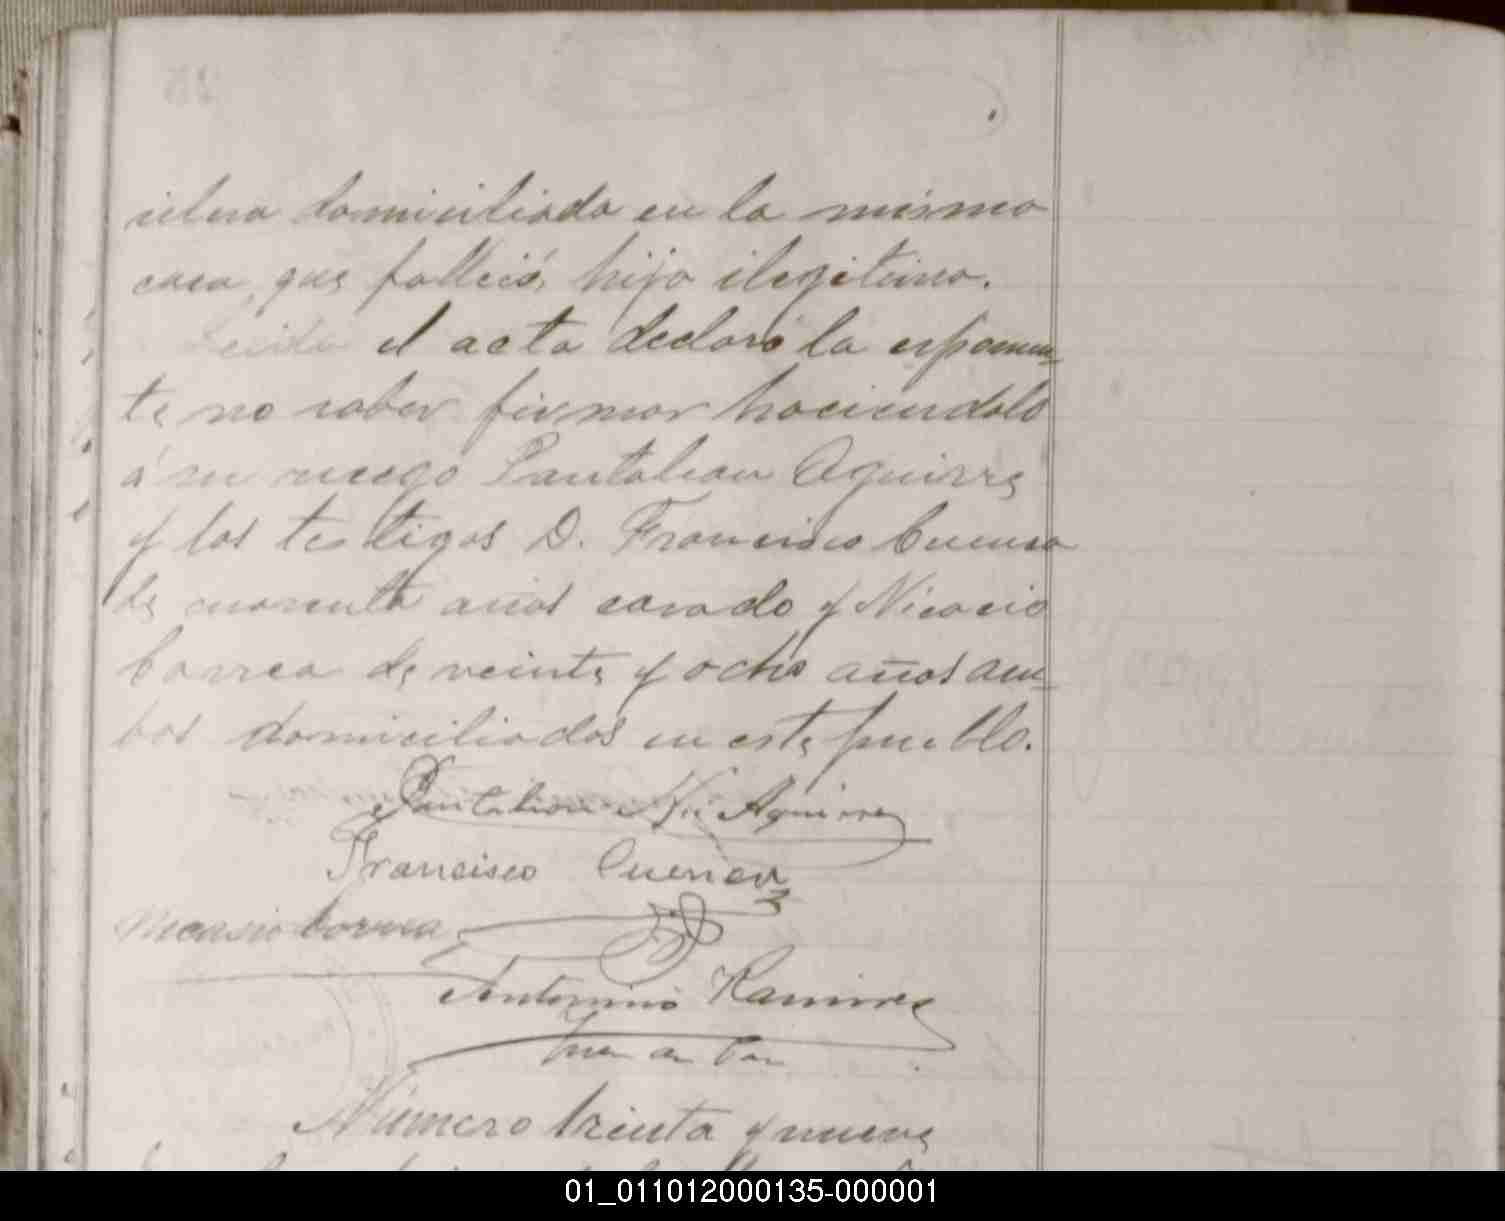 soltera domiciliada en la misma
casa, que falleció, hijo ilegitimo.
Leida el acta declaró la esponen-
te no saber firmar haciendolo
á su ruego Pantaleon Aguirre
y los testigos D. Francisco Cuenca
de cuarenta años casado y Nicacio
Correa de veinte y ocho años am-
bos domiciliados en este pueblo.
Pantalion Aguirre
Francisco Cuenca
Nicasio Correa
Antonino Ramirez
Juez de Paz
Número treinta y nueve
01_011012000135-000001